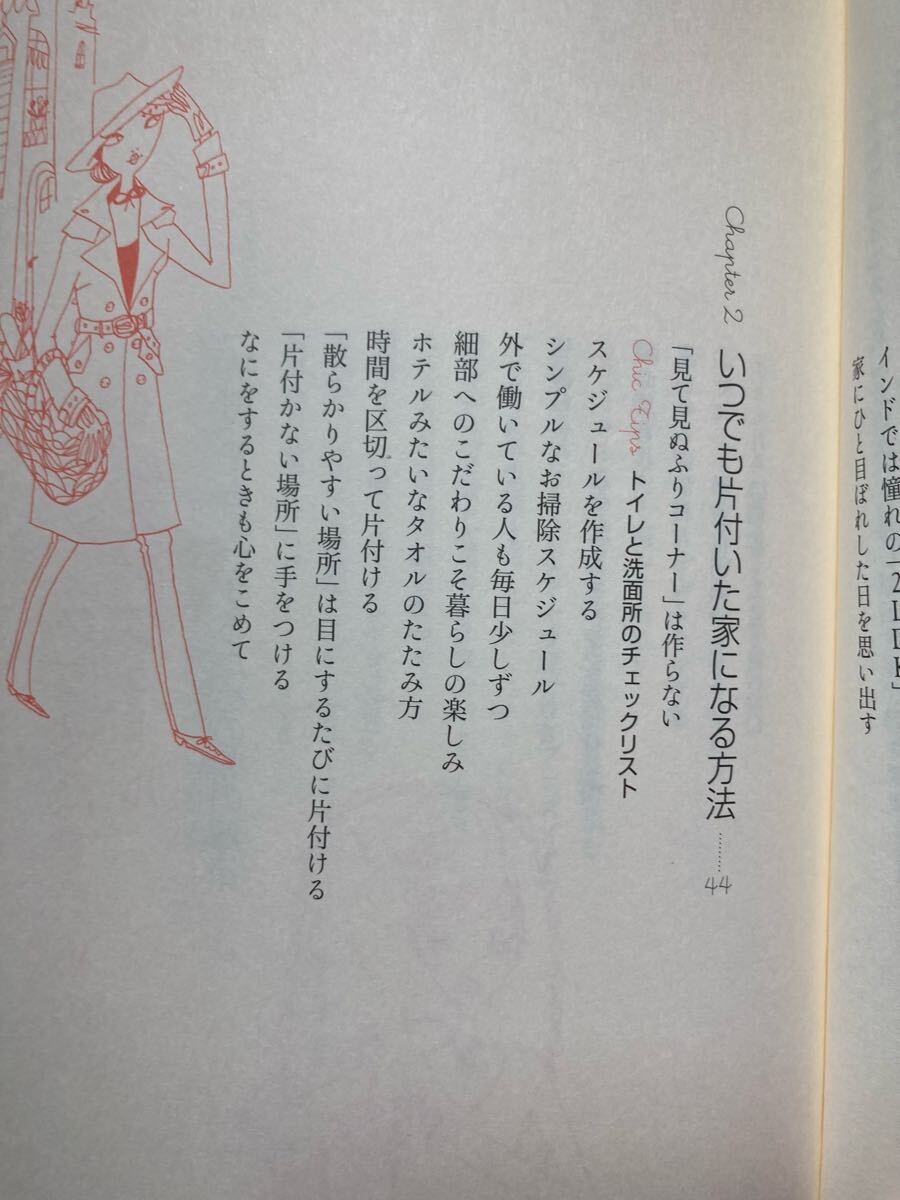 インドでは憧れの「2LDK」
家にひと目ぼれした日を思い出す
Chapter 2 いつでも片付いた家になる方法 ………… 44
「見て見ぬふりコーナー」は作らない
Chic Tips トイレと洗面所のチェックリスト
スケジュールを作成する
シンプルなお掃除スケジュール
外で働いている人も毎日少しずつ
細部へのこだわりこそ暮らしの楽しみ
ホテルみたいなタオルのたたみ方
時間を区切って片付ける
「散らかりやすい場所」は目にするたびに片付ける
「片付かない場所」に手をつける
なにをするときも心をこめて